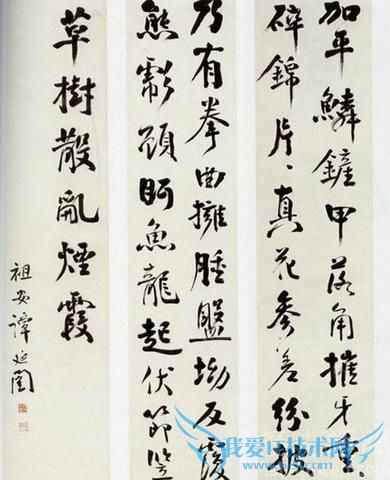 加平鱗鏟甲落角摧牙重〻
碎錦片〻真花參差紛披
乃有拳曲擁腫盤坳反覆
熊彪顧盻魚龍起伏節豎
草樹散亂煙霞
祖安譚延闓
我爱IT技术网